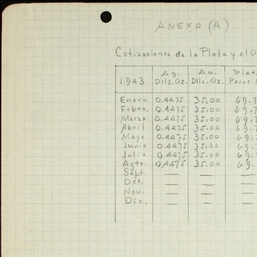 ANEXO (A)
Cotizaciones de la Plata y el O
1943 Ag. Dlls.Oz. Au. Dlls.Oz. Plat
Enero 0.4475 35.00 69.7
Febro. 0.4475 35.00 69.7
Marzo 0.4475 35.00 69.7
Abril 0.4475 35.00 69.7
Mayo 0.4475 35.00 69.7
Junio 0.4475 35.00 69.7
Julio 0.4475 35.00 69.7
Agto. 0.4475 35.00 69.
Sept. — — —
Oct. — — —
Nov. — — —
Dic. — — —